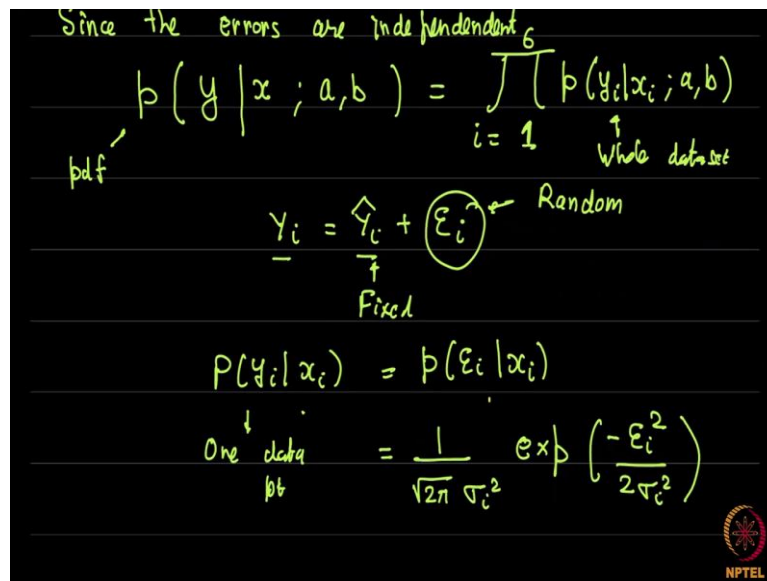 Since the errors are indephendendent
p(y|x ; a,b) = ∏_{i=1}^{6} p(y_i|x_i ; a,b)
pdf
Whole dataset
Y_i = Ŷ_i + ε_i ← Random
Fixed
P(y_i|x_i) = p(ε_i|x_i)
One data pt
= 1/(√2π σ_i²) exp(-ε_i²/2σ_i²)
NPTEL